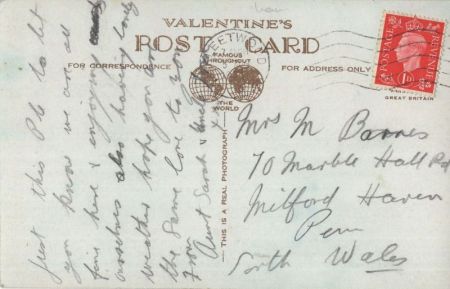 VALENTINE'S
POST CARD
FAMOUS
THROUGHOUT
THE
WORLD
FOR CORRESPONDENCE
FOR ADDRESS ONLY
FLEETWOOD
POSTAGE
REVENUE
1D
GREAT BRITAIN
THIS IS A REAL PHOTOGRAPH
Just this P.C to let
you know we are all
fine here & enjoying
ourselves also having lovely
weather hope you do
the same love to you
From
Aunt Sarah &
Mrs M Barnes
70 Marble Hall Rd
Milford Haven
Pem
South Wales